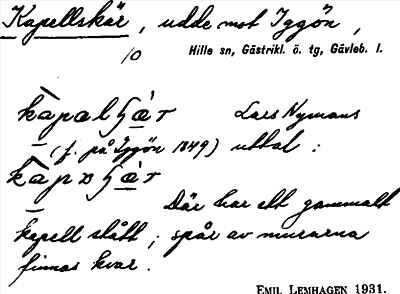 Kapellskär, udde mot Iggön,
10
Hille sn, Gästrikl. ö. tg, Gävleb. l.
Lars Nymans
(f. på Iggön 1849) uttal:
Där har ett gammalt
kapell stått; spår av murarna
finnas kvar.
EMIL LEMHAGEN 1931.